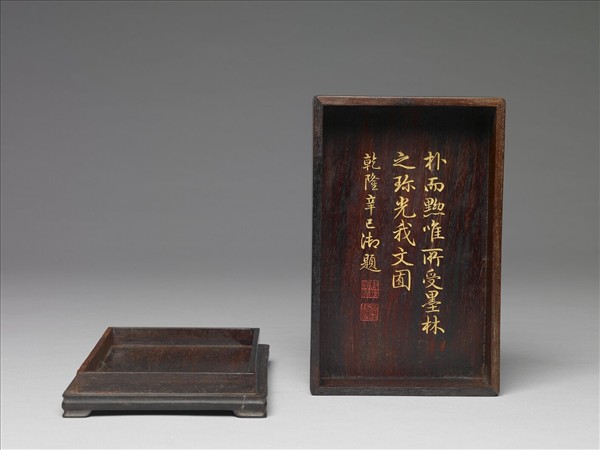 朴而黝唯所受墨林
之珎光我文囿
乾隆辛巳御題